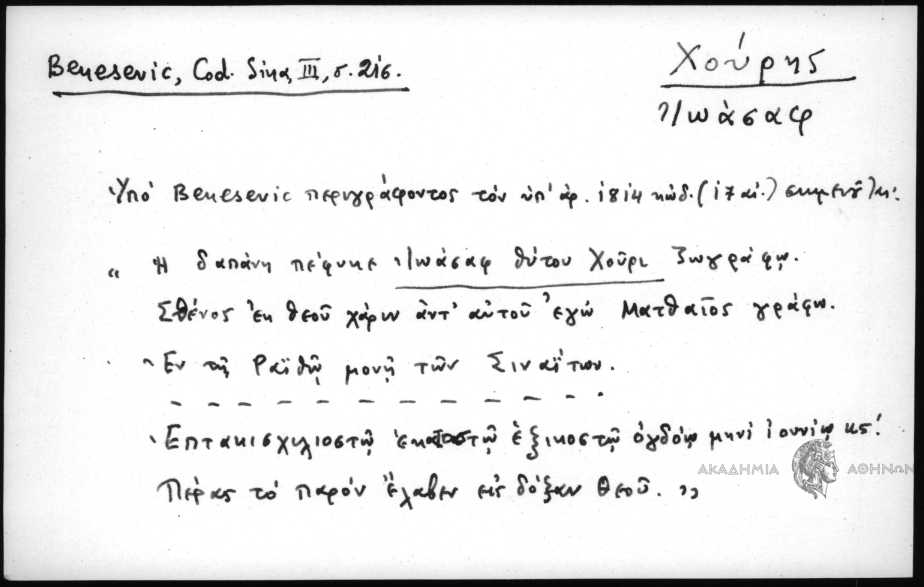 Benesevic, Cod. Sina, III, σ. 216.
Χούρης
Ἰωάσαφ
Ὑπό Benesevic περιγράφοντος τόν ὑπ' ἀρ. 1814 κώδ. (17 αἰ.) σημειοῦται:
“ Η δαπάνη πέφυκε Ἰωάσαφ θύτου Χούρι Ζωγράφω.
Σθένος ἐκ θεοῦ χάριν ἀντ' αὐτοῦ ἐγώ Ματθαῖος γράφω.
Ἐν τῇ Ραϊθῷ μονῇ τῶν Σιναϊτων.
Ἑπτακισχιλιοστῷ ἑκατοστῷ ἑξικοστῷ ὀγδόῳ μηνί ἰουνίῳ κς'.
Πέρας τό παρόν ἔλαβεν εἰς δόξαν θεοῦ. ”
ΑΚΑΔΗΜΙΑ ΑΘΗΝΩΝ